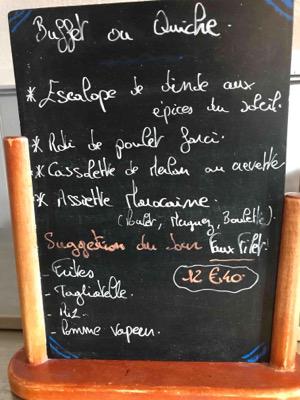 Buffet ou Quiche.
* Escalope de dinde aux
épices du soleil.
* Roti de poulet farci.
* Cassolette de Merlan au crevette
* Assiette Marocaine.
(Poulet, Merguez, Boulette).
Suggestion du Jour Faux Filet.
Frites 12 €40.
- Tagliatelle.
- Riz.
- Pomme vapeur.